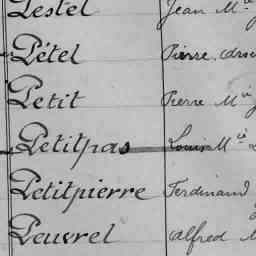 Lestel Jean M.ie
Pétel Pierre
Petit Pierre M.ie
Petitpas Louis M.ie
Petitpierre Ferdinand
Peuvrel Alfred